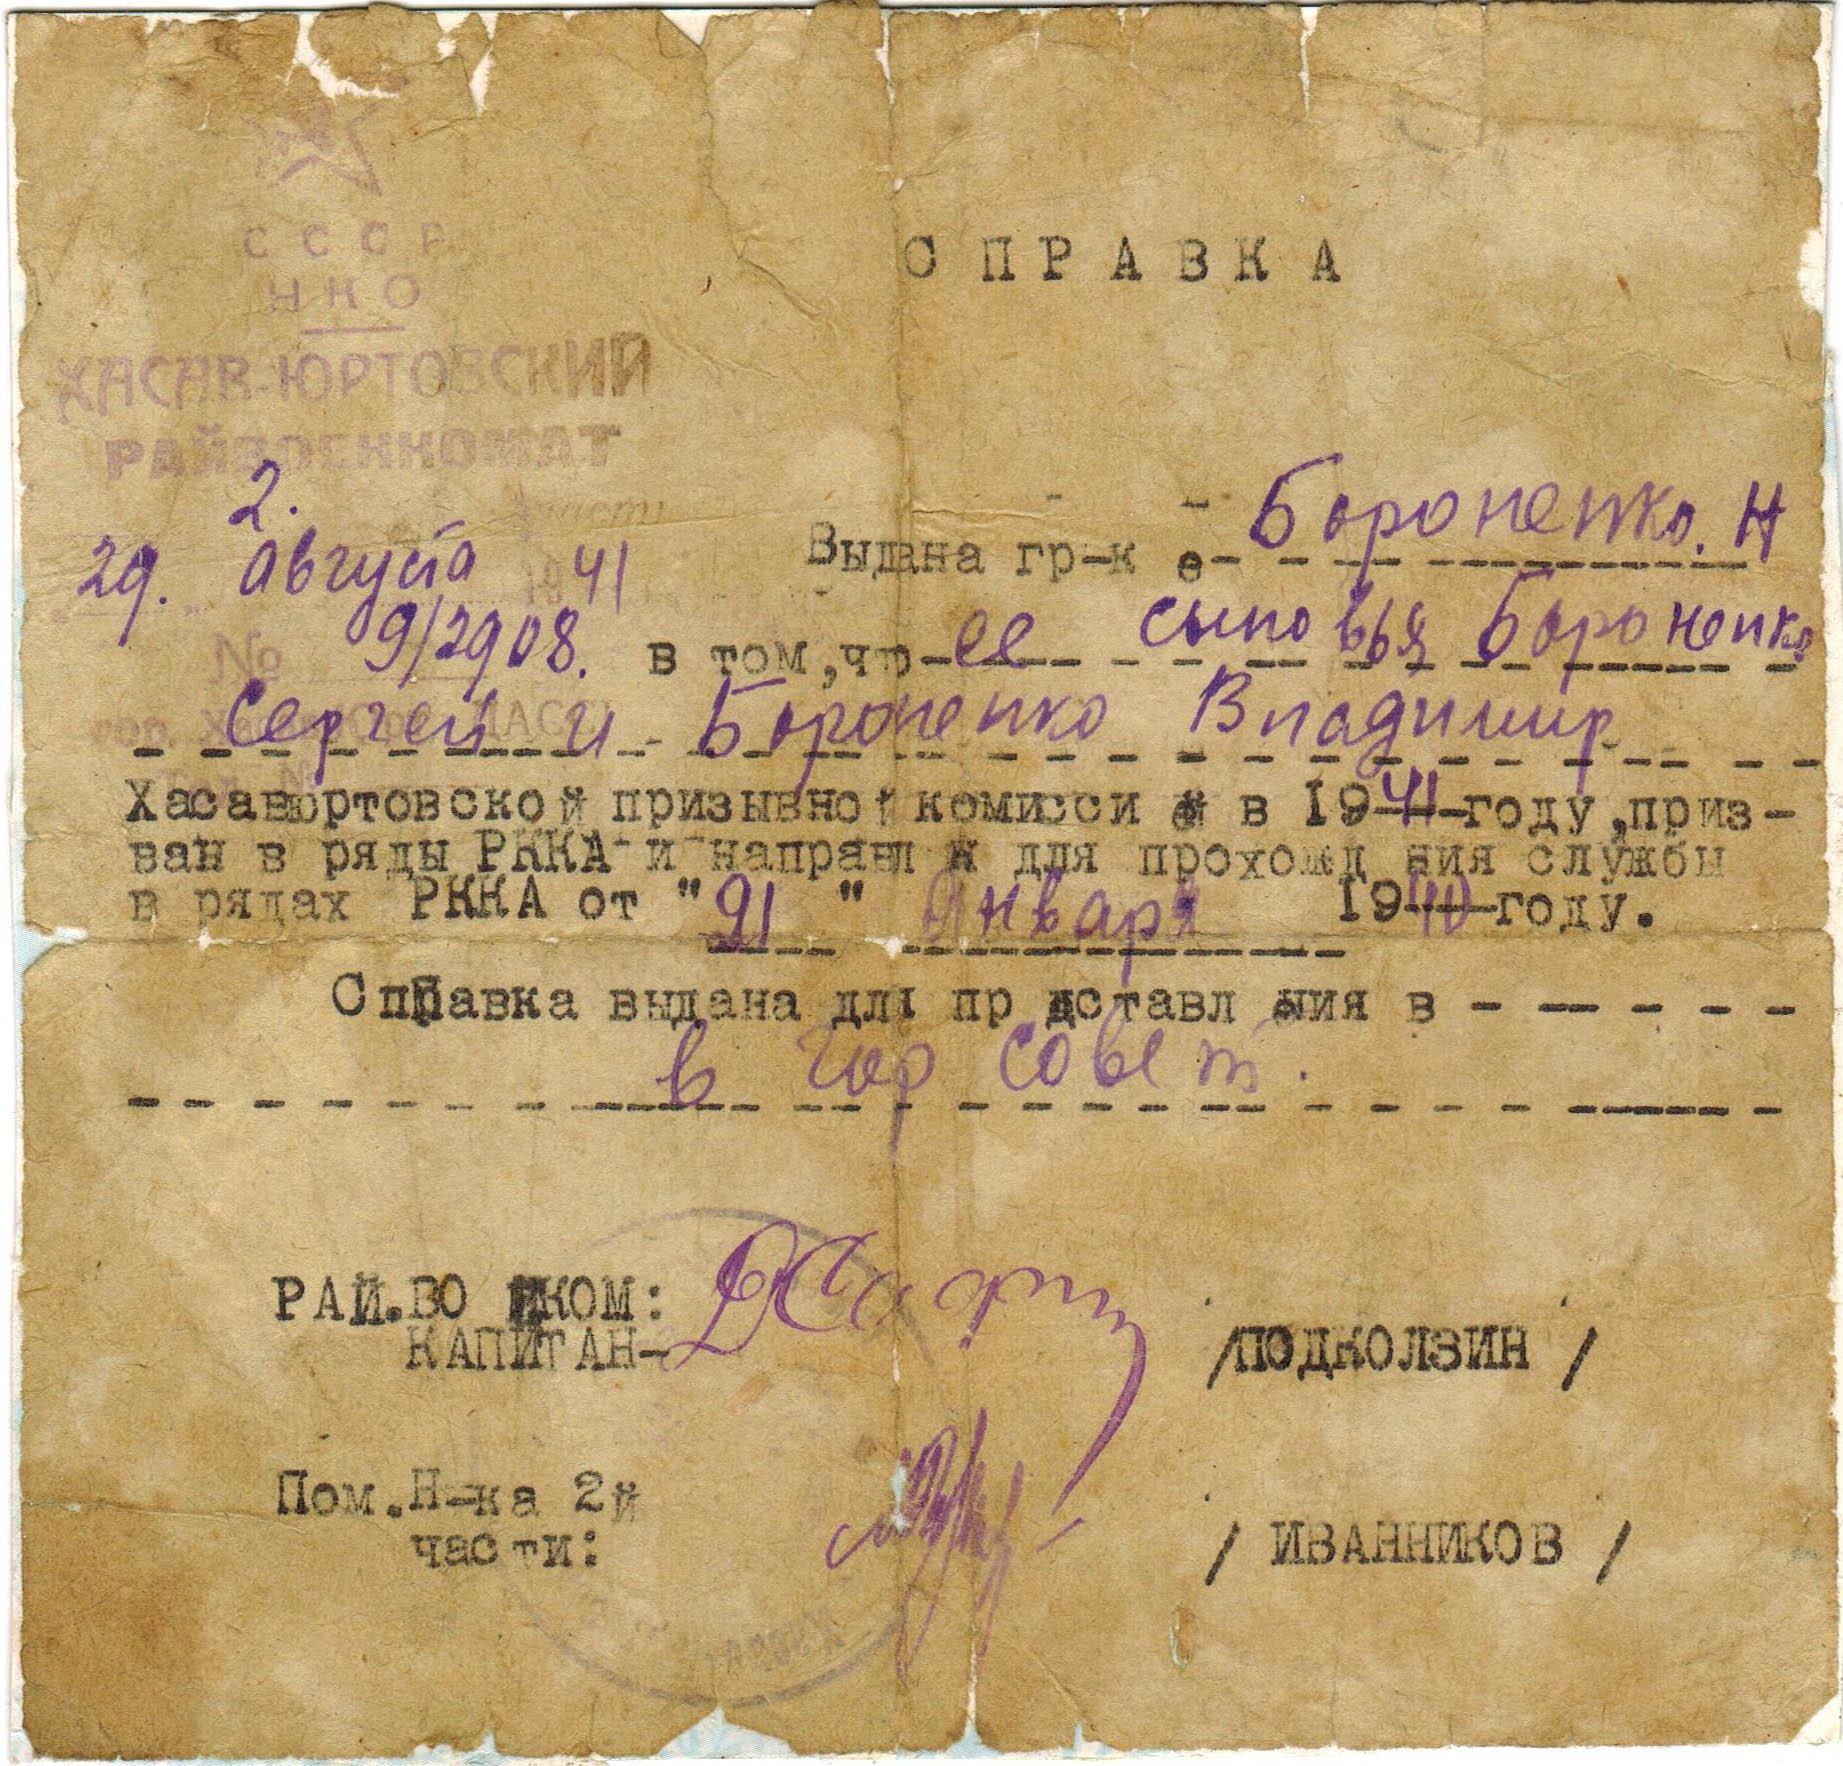 СССР
НКО
ХАСАВ-ЮРТОВСКИЙ
РАЙВОЕНКОМАТ
СПРАВКА
2. части
29. августа 1941
№ 9/2908.
Выдана гр-ке Бороненко. Н
в том, что ее сыновья Бороненко
Сергей и Бороненко Владимир
Хасавюртовской призывной комиссией в 1941 году, приз-
ван в ряды РККА и направлен для прохождения службы
в рядах РККА от "21" января 1940 году.
Справка выдана для представления в
в гор совет.
РАЙ.ВОЕНКОМ:
КАПИТАН- /ПОДКОЛЗИН /
Пом.Н-ка 2й
части: / ИВАННИКОВ /